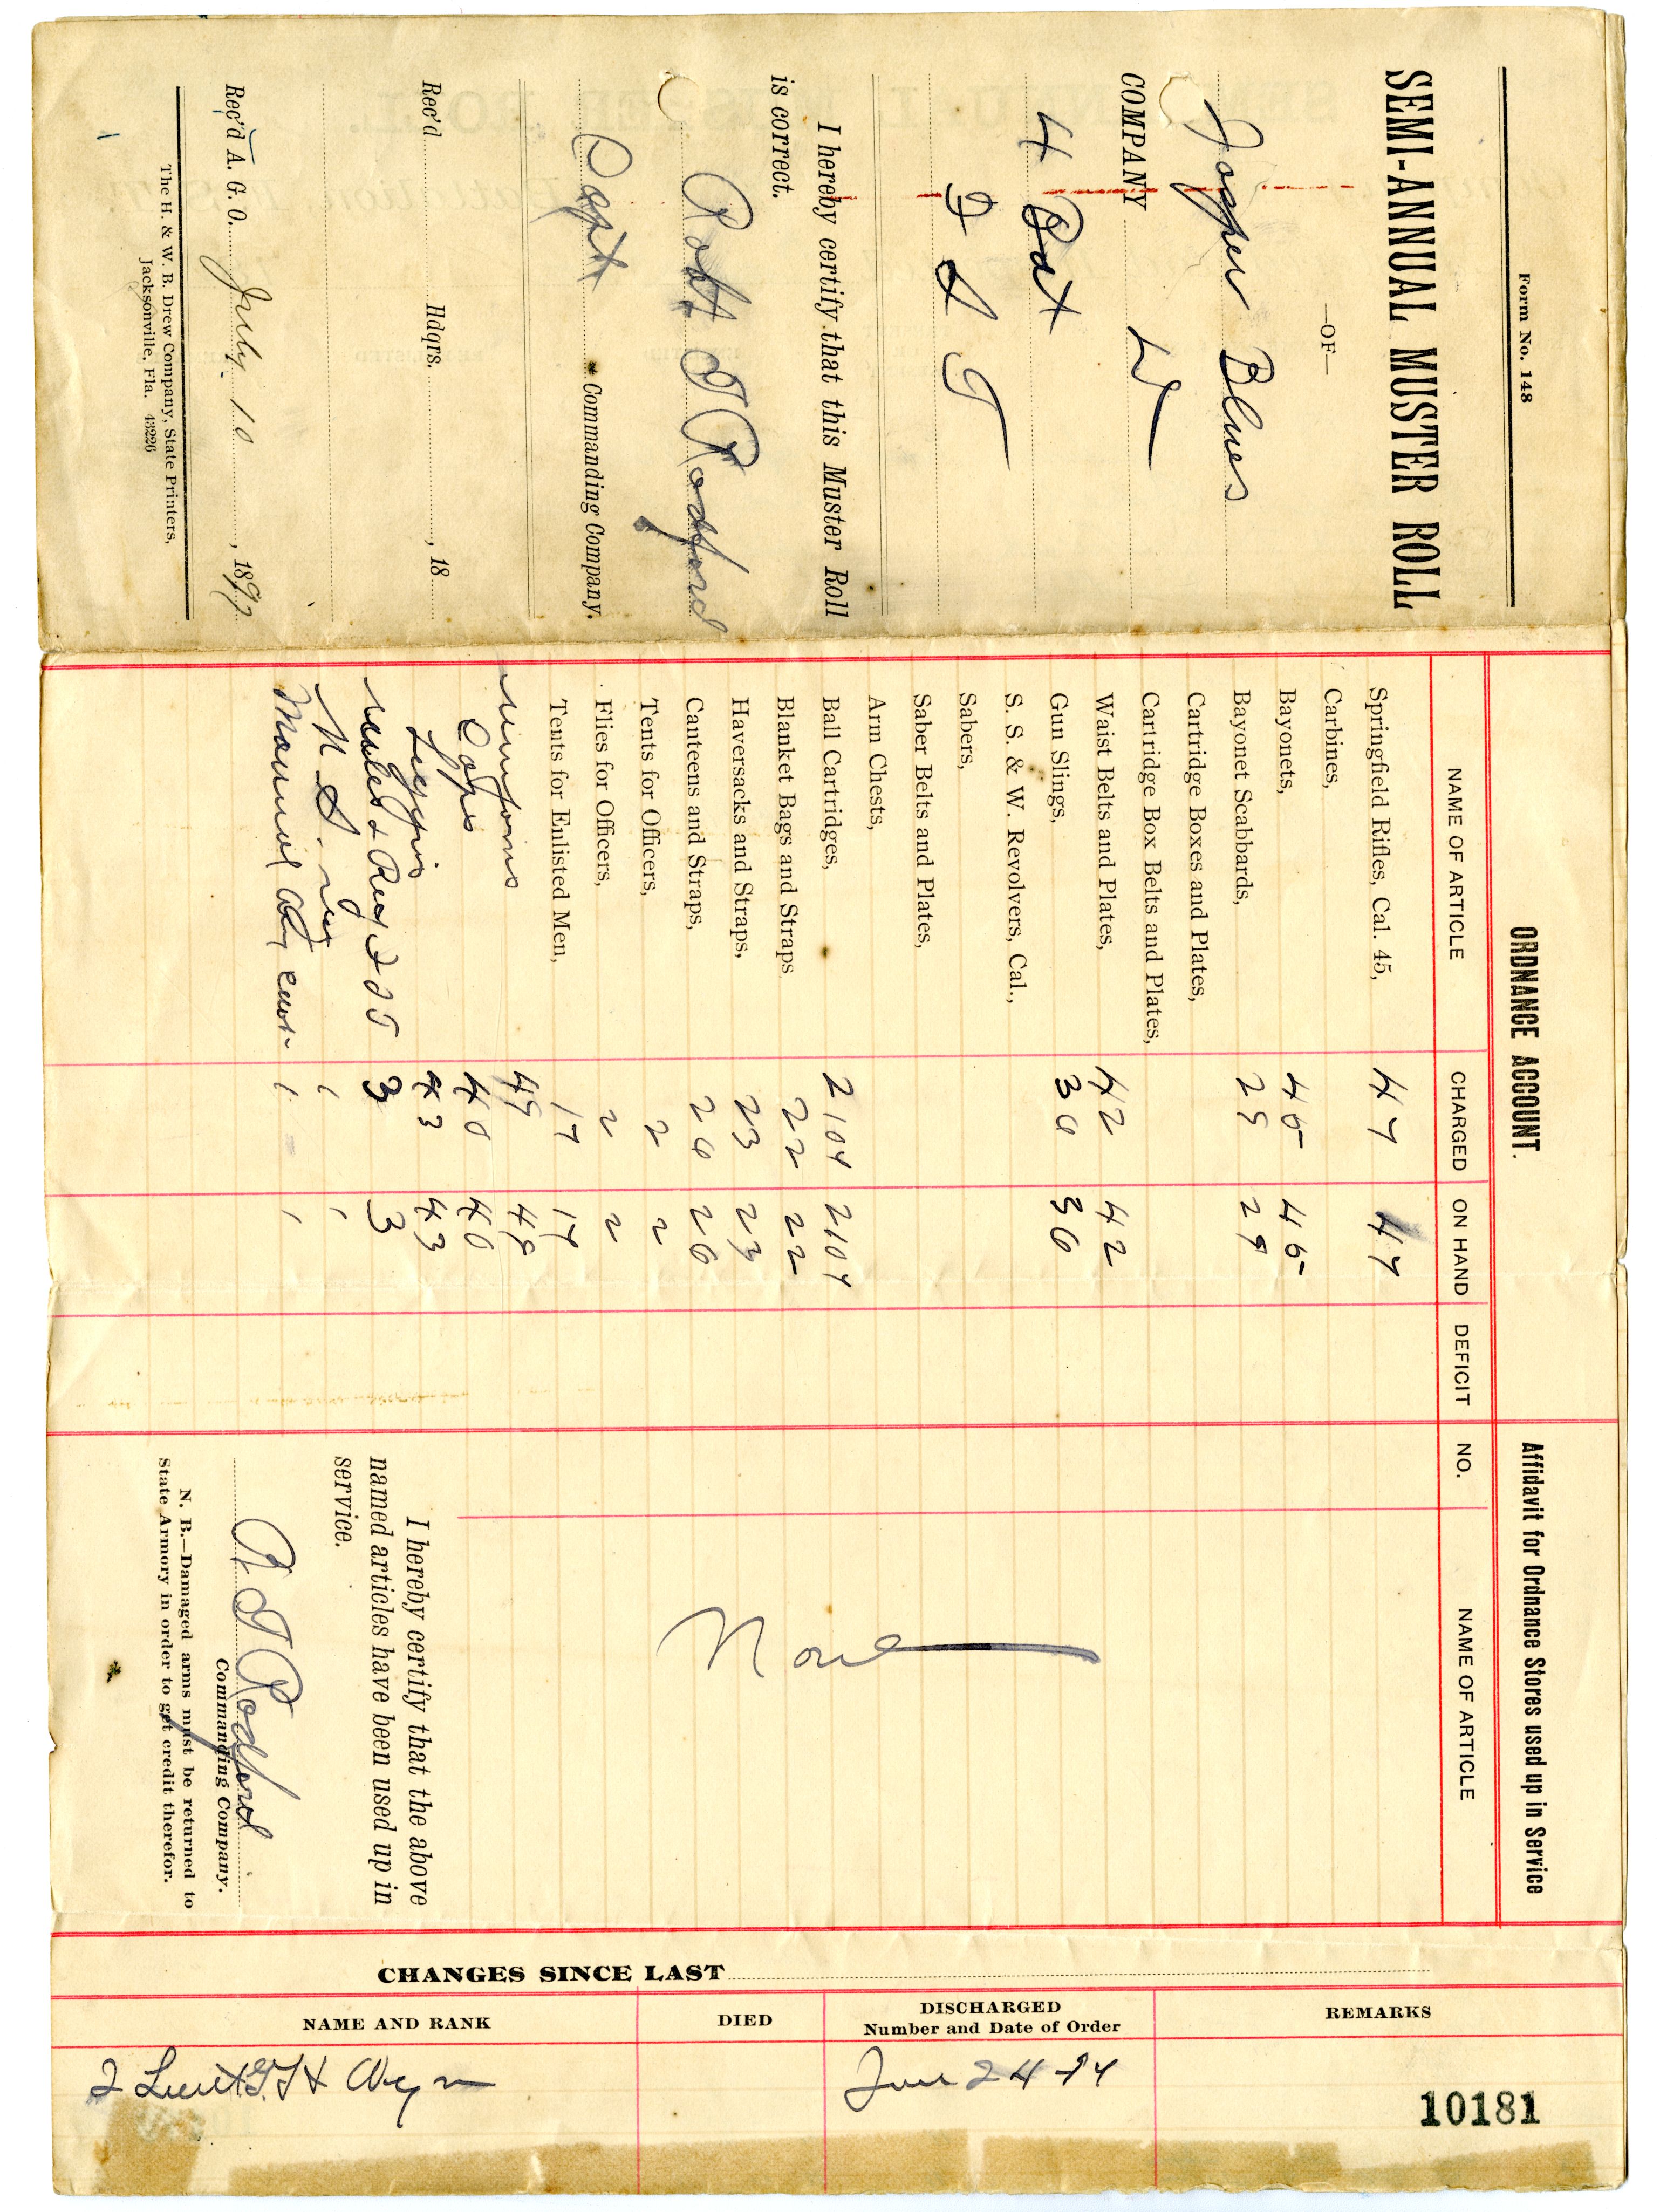 Form No. 148
SEMI-ANNUAL MUSTER ROLL
—OF—
Jasper Blues
COMPANY D
4 Bat
F S T
I hereby certify that this Muster Roll
is correct.
Robt J Rodford
Capt Commanding Company.
Rec'd Hdqrs. , 18
Rec'd A. G. O. July 10 , 1897
The H. & W. B. Drew Company, State Printers,
Jacksonville, Fla. 43226
ORDNANCE ACCOUNT.
NAME OF ARTICLE CHARGED ON HAND DEFICIT
Springfield Rifles, Cal. 45, 47 47
Carbines,
Bayonets, 45 45
Bayonet Scabbards, 29 29
Cartridge Boxes and Plates,
Cartridge Box Belts and Plates,
Waist Belts and Plates, 42 42
Gun Slings, 36 36
S. S. & W. Revolvers, Cal.,
Sabers,
Saber Belts and Plates,
Arm Chests,
Ball Cartridges, 2107 2107
Blanket Bags and Straps 22 22
Haversacks and Straps, 23 23
Canteens and Straps, 26 26
Tents for Officers, 2 2
Flies for Officers, 2 2
Tents for Enlisted Men, 17 17
Uniforms 49 49
Caps 40 40
Leggins 43 43
Rules & Reg F S T 3 3
1 1
Manual 1 1
Affidavit for Ordnance Stores used up in Service
NO. NAME OF ARTICLE
None
I hereby certify that the above
named articles have been used up in
service.
R J Rodford
Commanding Company.
N. B.—Damaged arms must be returned to
State Armory in order to get credit therefor.
CHANGES SINCE LAST
NAME AND RANK DIED DISCHARGED Number and Date of Order REMARKS
2 Lieut Wynn June 24-97
10181